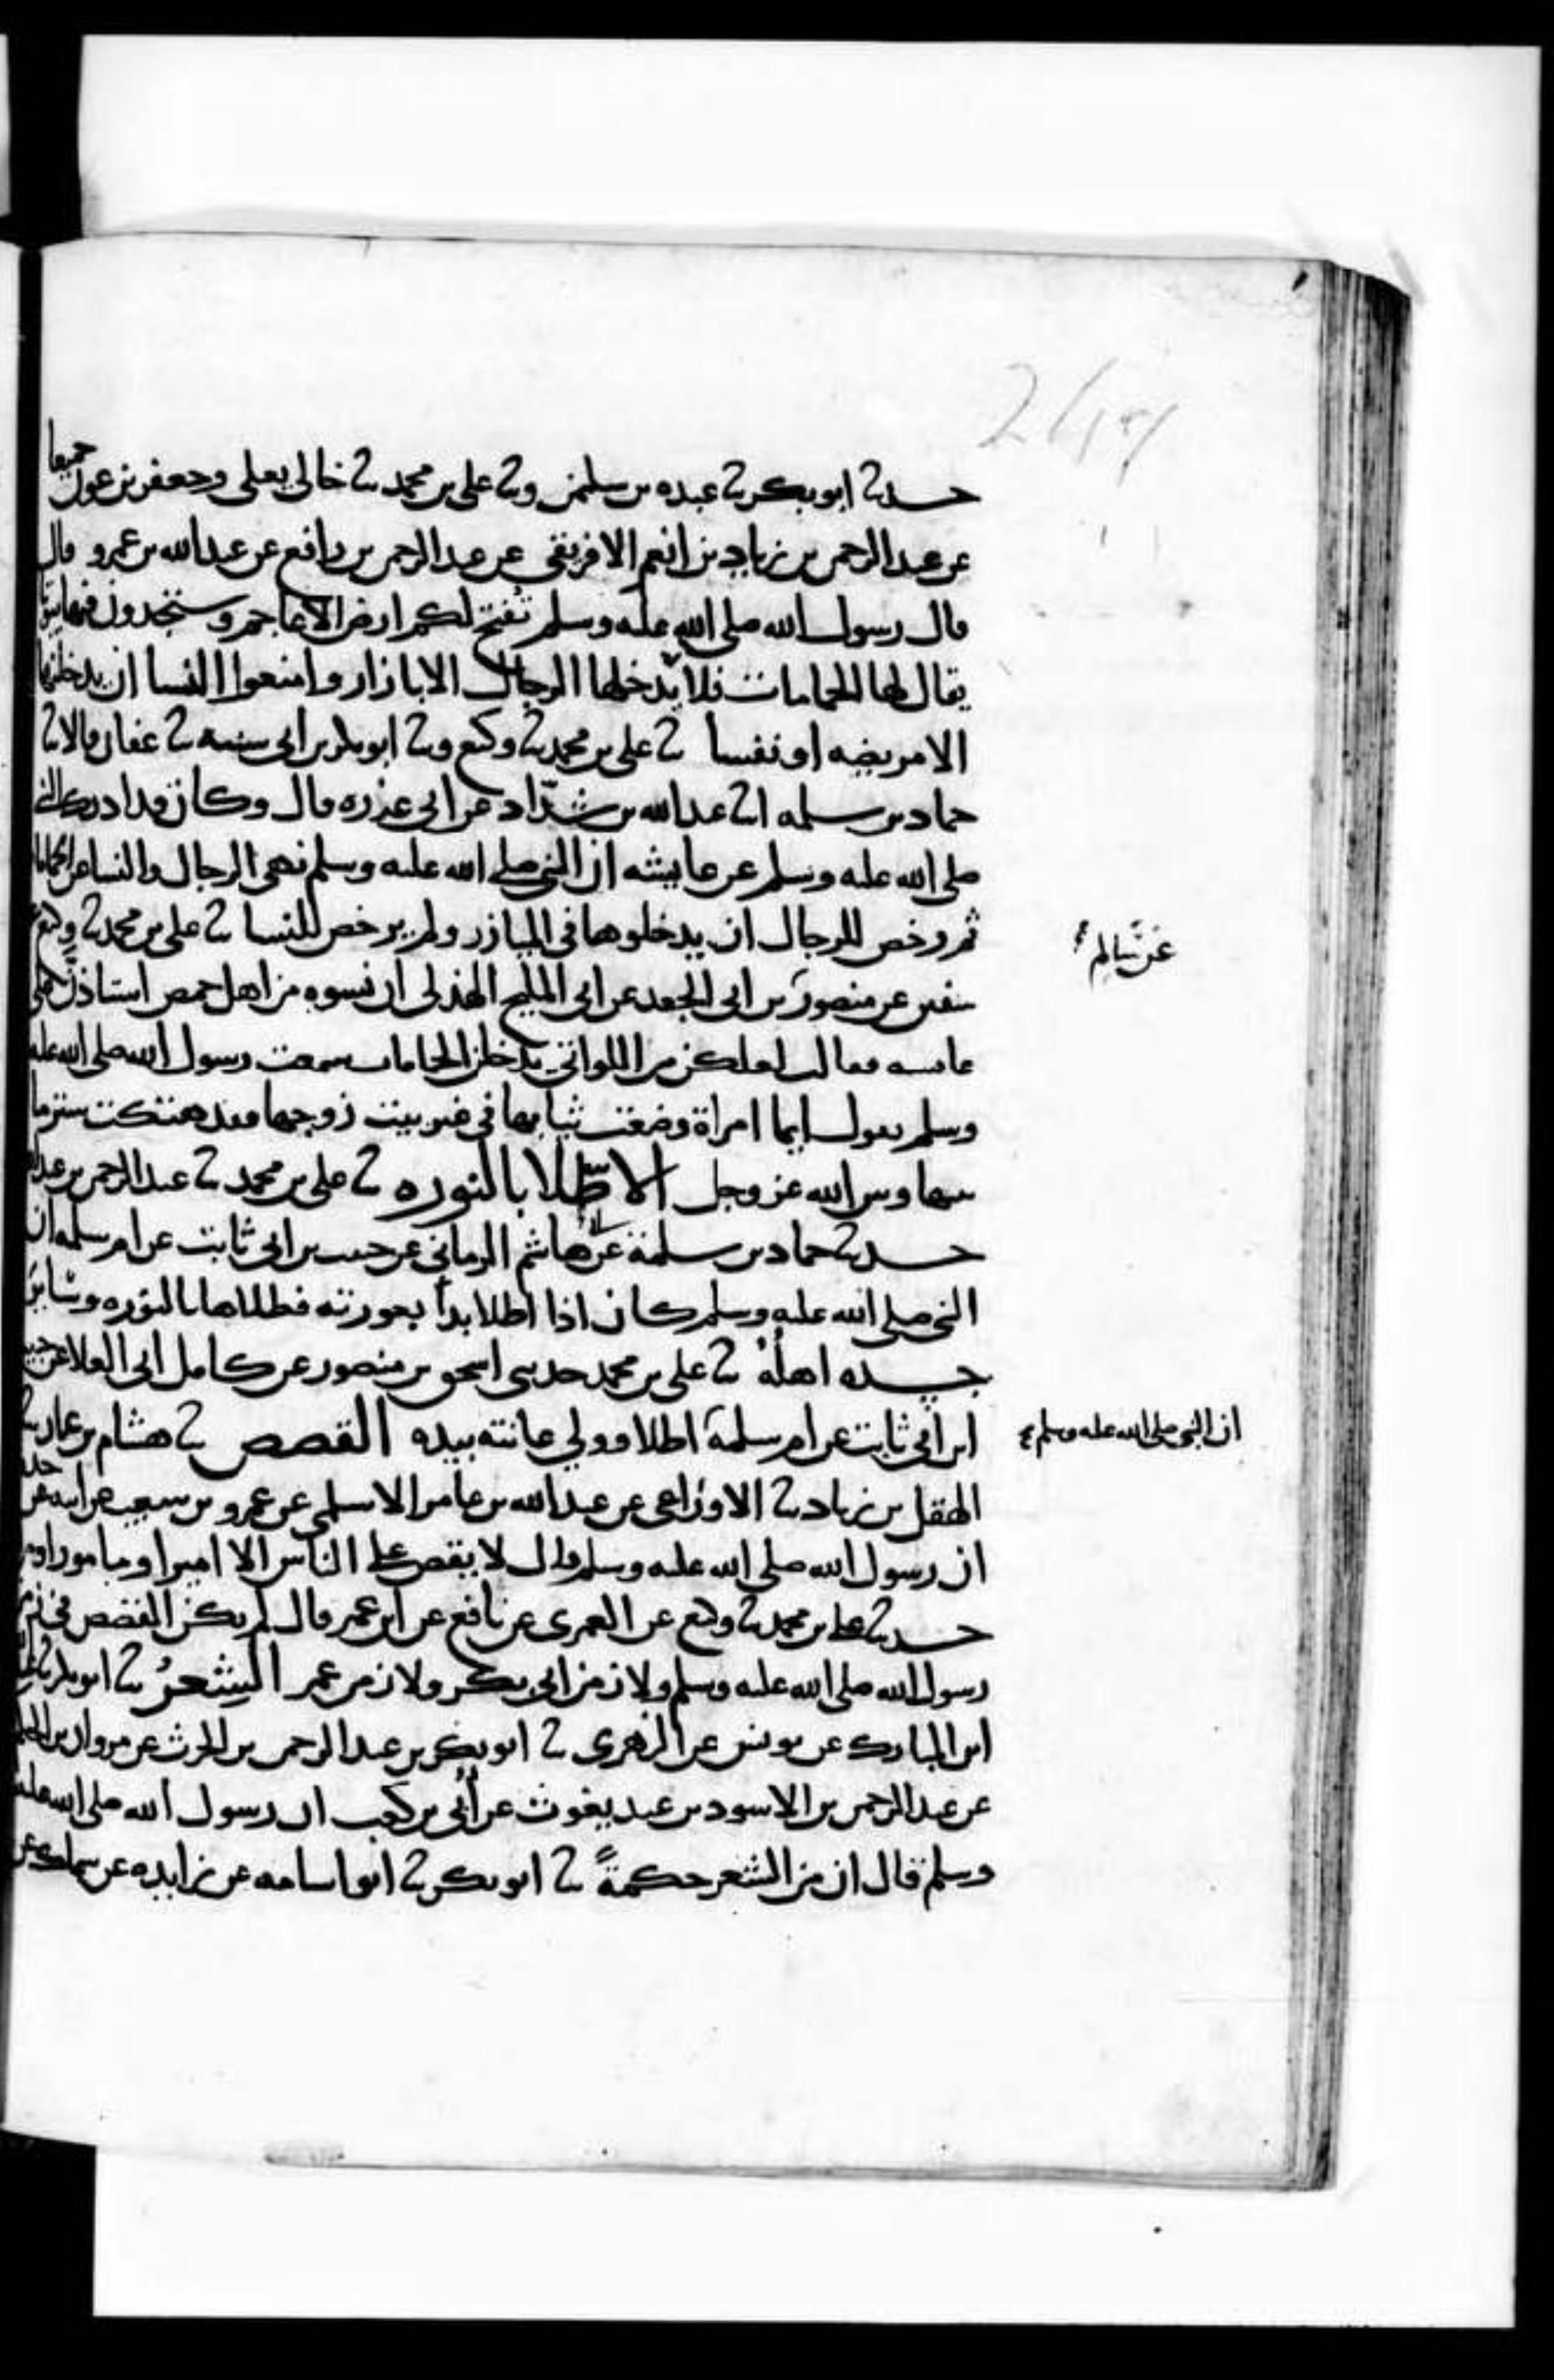 حدثنا ابو بكر ثنا عبده بن سليمن وثنا علي بن محمد ثنا خالي يعلى وجعفر بن عون جميعا
عن عبد الرحمن بن زياد بن انعم الافريقي عن عبد الرحمن بن رافع عن عبد الله بن عمرو قال
قال رسول الله صلى الله عليه وسلم تفتح لكم ارض الاعاجم وستجدون فيها بيوتا
يقال لها الحمامات فلا يدخلها الرجال الا بازار وامنعوا النسا ان يدخلنها
الا مريضه او نفسا ثنا علي بن محمد ثنا وكيع وثنا ابو بكر بن ابي شيبه ثنا عفان قالا ثنا
حماد بن سلمه انا عبد الله بن شداد عن ابي عذره قال وكان قد ادرك النبي
صلى الله عليه وسلم عن عايشه ان النبي صلى الله عليه وسلم نهى الرجال والنسا عن الحمامات
ثم رخص للرجال ان يدخلوها في الميازر ولم يرخص للنسا ثنا علي بن محمد ثنا وكيع
عن سالم
سفين عن منصور بن ابي الجعد عن ابي المليح الهذلي ان نسوه من اهل حمص استاذن على
عايشه فقالت لعلكن من اللواتي يدخلن الحمامات سمعت رسول الله صلى الله عليه
وسلم يقول ايما امراة وضعت ثيابها في غير بيت زوجها فقد هتكت ستر ما
بينها وبين الله عز وجل الاطلا بالنوره ثنا علي بن محمد ثنا عبد الرحمن بن عبد الله
حدثنا حماد بن سلمة عن ابي هاشم الرماني عن حبيب بن ابي ثابت عن ام سلمه ان
النبي صلى الله عليه وسلم كان اذا اطلا بدأ بعورته فطلاها بالنوره وسائر
جسده اهله ثنا علي بن محمد حدثني اسحق بن منصور عن كامل ابي العلا عن حبيب
ابن ابي ثابت عن ام سلمة اطلا وولي عانته بيده القصص ثنا هشام بن عمار ثنا
ان النبي صلى الله عليه وسلم
الهقل بن زياد ثنا الاوزاعي عن عبد الله بن عامر الاسلمي عن عمرو بن شعيب عن ابيه عن جده
ان رسول الله صلى الله عليه وسلم قال لا يقص على الناس الا امير او مامور او
حدثنا علي بن محمد ثنا وكيع عن العمري عن نافع عن ابن عمر قال لم يكن القصص في زمن
رسول الله صلى الله عليه وسلم ولا زمن ابي بكر ولا زمن عمر الشعر ثنا ابو بكر ثنا
ابن المبارك عن يونس عن الزهري ثنا ابو بكر بن عبد الرحمن بن الحرث عن مروان بن الحكم
عن عبد الرحمن بن الاسود بن عبد يغوث عن أبي بن كعب ان رسول الله صلى الله عليه
وسلم قال ان من الشعر حكمة ثنا ابو بكر ثنا ابو اسامه عن زايده عن سماك عن